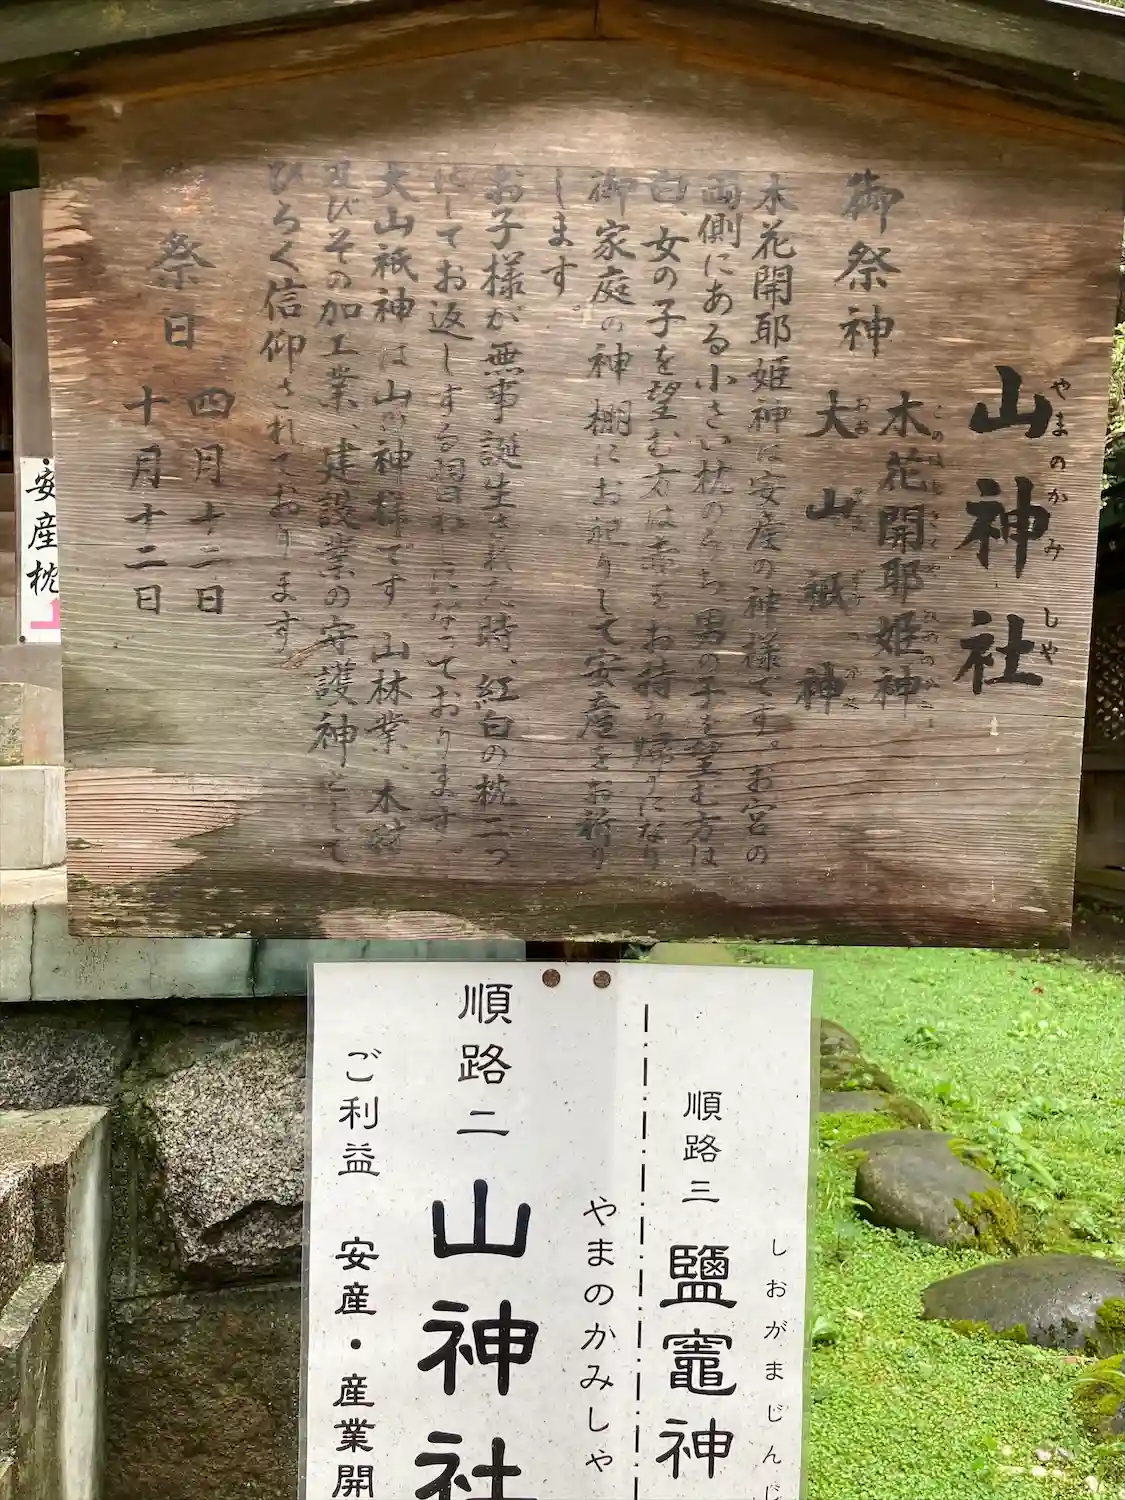 山神社
やまのかみしゃ
御祭神
木花開耶姫神
大山祇神
木花開耶姫神は安産の神様です。お宮の
両側にある小さい枕のうち、男の子を望む方は
白、女の子を望む方は赤をお持ち帰りになり
御家庭の神棚にお祀りして安産をお祈り
します。
お子様が無事誕生された時、紅白の枕二つ
にしてお返しする習わしになっております
大山祇神は山の神様です 山林業、木材
及びその加工業 建設業の守護神として
ひろく信仰されております
祭日
四月十二日
十月十二日
安産枕
順路三 鹽竈神
しおがまじんじ
やまのかみしゃ
順路二 山神社
ご利益 安産・産業開